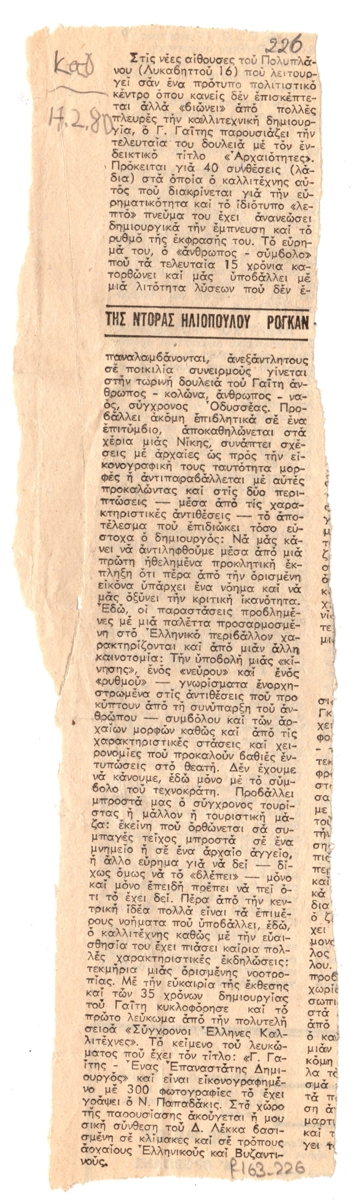 226
Καθ
17.2.80
Στίς νέες αἴθουσες τοῦ Πολυπλά-
νου (Λυκαβηττοῦ 16) πού λειτουρ-
γεῖ σάν ἕνα πρότυπο πολιτιστικό
κέντρο ὅπου κανείς δέν ἐπισκέπτε-
ται ἀλλά «βιώνει» ἀπό πολλές
πλευρές τήν καλλιτεχνική δημιουρ-
γία, ὁ Γ. Γαΐτης παρουσιάζει τήν
τελευταία του δουλειά μέ τόν ἐν-
δεικτικό τίτλο «Ἀρχαιότητες».
Πρόκειται γιά 40 συνθέσεις (λά-
δια) στά ὁποῖα ὁ καλλιτέχνης αὐ-
τός πού διακρίνεται γιά τήν εὑ-
ρηματικότητα καί τό ἰδιότυπο «λε-
πτό» πνεῦμα του ἔχει ἀνανεώσει
δημιουργικά τήν ἔμπνευση καί τό
ρυθμό τῆς ἔκφρασής του. Τό εὕρη-
μά του, ὁ «ἄνθρωπος - σύμβολο»
πού τά τελευταῖα 15 χρόνια κα-
τορθώνει καί μᾶς ὑποβάλλει μέ
μιά λιτότητα λύσεων πού δέν ἐ-
ΤΗΣ ΝΤΟΡΑΣ ΗΛΙΟΠΟΥΛΟΥ ΡΟΓΚΑΝ
παναλαμβάνονται, ἀνεξάντλητους
σέ ποικιλία συνειρμούς γίνεται
στήν τωρινή δουλειά τοῦ Γαΐτη ἄν-
θρωπος - κολώνα, ἄνθρωπος - να-
ός, σύγχρονος Ὀδυσσέας. Προ-
βάλλει ἀκόμη ἐπιβλητικά σέ ἕνα
ἐπιτύμβιο, ἀποκαθηλώνεται στά
χέρια μιᾶς Νίκης, συνάπτει σχέ-
σεις μέ ἀρχαῖες ὡς πρός τήν εἰ-
κονογραφική τους ταυτότητα μορ-
φές ἤ ἀντιπαραβάλλεται μέ αὐτές
προκαλώντας καί στίς δύο περι-
πτώσεις — μέσα ἀπό τίς χαρα-
κτηριστικές ἀντιθέσεις — τό ἀπο-
τέλεσμα πού ἐπιδιώκει τόσο εὔ-
στοχα ὁ δημιουργός: Νά μᾶς κά-
νει νά ἀντιληφθοῦμε μέσα ἀπό μιά
πρώτη ἠθελημένα προκλητική ἔκ-
πληξη ὅτι πέρα ἀπό τήν ὁρισμένη
εἰκόνα ὑπάρχει ἕνα νόημα καί νά
μᾶς ὀξύνει τήν κριτική ἱκανότητα.
Ἐδῶ, οἱ παραστάσεις προβλημέ-
νες μέ μιά παλέττα προσαρμοσμέ-
νη στό Ἑλληνικό περιβάλλον χα-
ρακτηρίζονται καί ἀπό μιάν ἄλλη
καινοτομία: Τήν ὑποβολή μιᾶς «κί-
νησης», ἑνός «νεύρου» καί ἑνός
«ρυθμοῦ» — γνωρίσματα ἐνορχη-
στρωμένα στίς ἀντιθέσεις πού προ
κύπτουν ἀπό τή συνύπαρξη τοῦ ἀν-
θρώπου — συμβόλου καί τῶν ἀρ-
χαίων μορφῶν καθώς καί ἀπό τίς
χαρακτηριστικές στάσεις καί χει-
ρονομίες πού προκαλοῦν βαθιές ἐν-
τυπώσεις στό θεατή. Δέν ἔχουμε
νά κάνουμε, ἐδῶ μόνο μέ τό σύμ-
βολο τοῦ τεχνοκράτη. Προβάλλει
μπροστά μας ὁ σύγχρονος τουρί-
στας ἤ μᾶλλον ἡ τουριστική μά-
ζα: ἐκείνη πού ὀρθώνεται σά συ-
μπαγές τεῖχος μπροστά σέ ἕνα
μνημεῖο ἤ σέ ἕνα ἀρχαῖο ἀγγεῖο,
ἤ ἄλλο εὕρημα γιά νά δεῖ — δί-
χως ὅμως νά τό «βλέπει» — μόνο
καί μόνο ἐπειδή πρέπει νά πεῖ ὅ-
τι τό ἔχει δεῖ. Πέρα ἀπό τήν κεν-
τρική ἰδέα πολλά εἶναι τά ἐπιμέ-
ρους νοήματα πού ὑποβάλλει, ἐδῶ,
ὁ καλλιτέχνης καθώς μέ τήν εὐαι-
σθησία του ἔχει πιάσει καίρια πολ-
λές χαρακτηριστικές ἐκδηλώσεις:
τεκμήρια μιᾶς ὁρισμένης νοοτρο-
πίας. Μέ τήν εὐκαιρία τῆς ἔκθεσης
καί τῶν 35 χρόνων δημιουργίας
τοῦ Γαΐτη κυκλοφόρησε καί τό
πρῶτο λεύκωμα ἀπό τήν πολυτελή
σειρά «Σύγχρονοι Ἕλληνες Καλ-
λιτέχνες». Τό κείμενο τοῦ λευκώ-
ματος πού ἔχει τόν τίτλο: «Γ. Γα-
ΐτης - Ἕνας Ἐπαναστάτης Δημι-
ουργός» καί εἶναι εἰκονογραφημέ-
νο μέ 300 φωτογραφίες τό ἔχει
γράψει ὁ Ν. Παπαδάκις. Στό χῶρο
τῆς παρουσίασης ἀκούγεται ἡ μου
σική σύνθεση τοῦ Δ. Λέκκα βασι-
σμένη σέ κλίμακες καί σέ τρόπους
ἀρχαίους Ἑλληνικούς καί Βυζαντι-
νούς.
P163-226